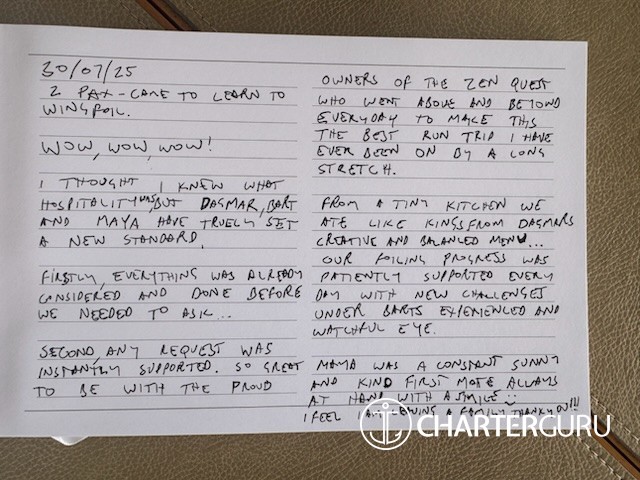 30/07/25
2 PAX - CAME TO LEARN TO
WINGFOIL.
WOW, WOW, WOW!
I THOUGHT I KNEW WHAT
HOSPITALITY WAS, BUT DAGMAR, BART
AND MAYA HAVE TRUELY SET
A NEW STANDARD.
FIRSTLY, EVERYTHING WAS ALREADY
CONSIDERED AND DONE BEFORE
WE NEEDED TO ASK...
SECOND, ANY REQUEST WAS
INSTANTLY SUPPORTED. SO GREAT
TO BE WITH THE PROUD
OWNERS OF THE ZEN QUEST
WHO WENT ABOVE AND BEYOND
EVERYDAY TO MAKE THIS
THE BEST RUN TRIP I HAVE
EVER BEEN ON BY A LONG
STRETCH.
FROM A TINY KITCHEN WE
ATE LIKE KINGS FROM DAGMARS
CREATIVE AND BALANCED MENU...
OUR FOILING PROGRESS WAS
PATIENTLY SUPPORTED EVERY
DAY WITH NEW CHALLENGES
UNDER BARTS EXPERIENCED AND
WATCHFUL EYE.
MAYA WAS A CONSTANT SUNNY
AND KIND FIRST MATE ALWAYS
AT HAND WITH A SMILE
I FEEL I AM LEAVING A FAMILY THANKYOU!!!
CHARTERGURU